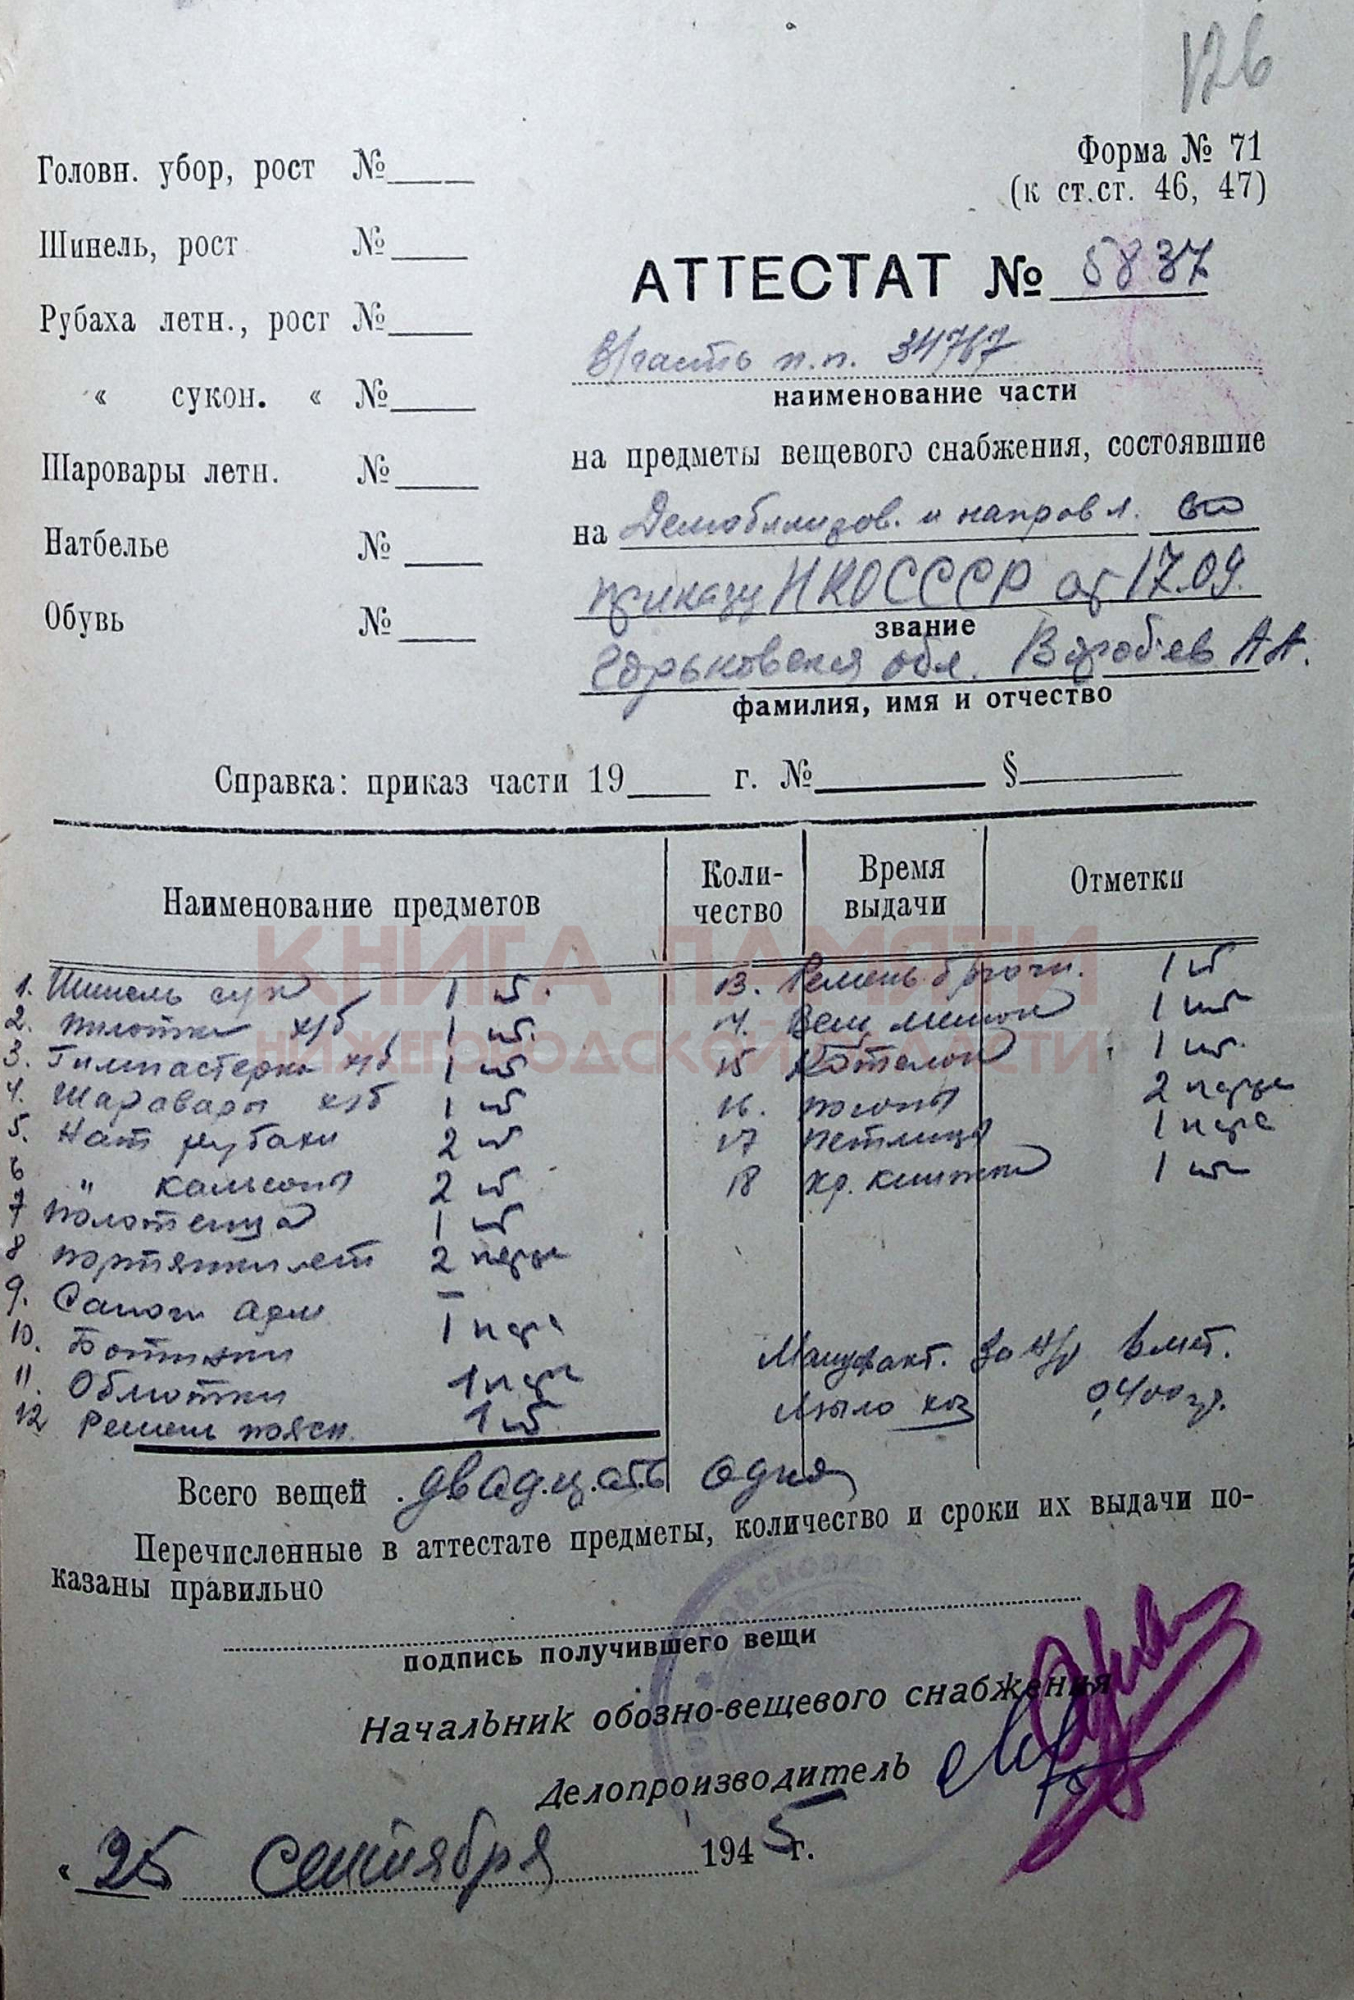 126
Форма № 71
(к ст.ст. 46, 47)
Головн. убор, рост №
Шинель, рост №
Рубаха летн., рост №
« сукон. « №
Шаровары летн. №
Натбелье №
Обувь №
АТТЕСТАТ № 5837
В/часть п.п. 34767
наименование части
на предметы вещевого снабжения, состоявшие
на Демобилизов. и направл.
приказу НКО СССР от 17.09.
звание
Горьковская обл. Воробьев А А.
фамилия, имя и отчество
Справка: приказ части 19 г. № §
Наименование предметов
Коли-
чество
Время
выдачи
Отметки
КНИГА ПАМЯТИ
НИЖЕГОРОДСКОЙ ОБЛАСТИ
1. Шинель сук 1 ш.
2. Пилотка х/б 1 ш.
3. Гимнастерка х/б 1 ш
4. Шаровары х/б 1 ш
5. Нат рубахи 2 ш
6 " кальсоны 2 ш
7 Полотенца 1 ш
8 Портянки лет 2 пары
9. Сапоги арм –
10. Ботинки 1 пара
11. Обмотки 1 пара
12 Ремень поясн. 1 ш
13. Ремень брючн. 1 ш
14. Вещ. мешок 1 шт
15 Котелок 1 шт.
16. погоны 2 пары
17 петлицы 1 пара
18 кр. книжка 1 шт
Мануфакт. 
мыло хоз 0,400 гр.
Всего вещей двадцать один
Перечисленные в аттестате предметы, количество и сроки их выдачи по-
казаны правильно
подпись получившего вещи
Начальник обозно-вещевого снабжения
Делопроизводитель
« 25 сентября 1945 г.